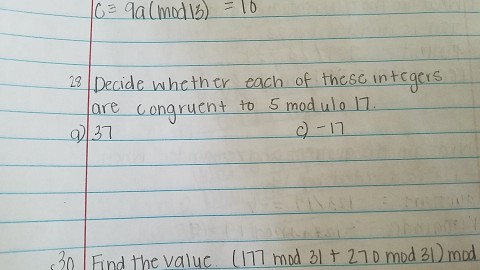 C ≡ 9a (mod 13) = 10
28 Decide whether each of these integers
are congruent to 5 modulo 17.
a) 37 c) -17
30 Find the value (177 mod 31 + 270 mod 31) mod